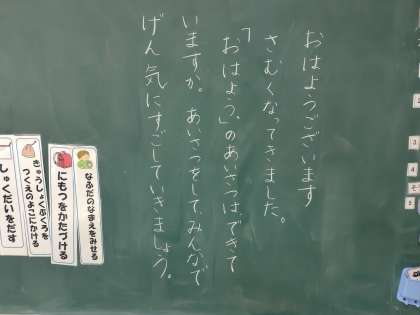 おはようございます
さむくなってきました。
「おはよう。」のあいさつは、できて
いますか。あいさつをして、みんなで
げん気にすごしていきましょう。
なふだのなまえをみせる
にもつをかたづける
きゅうしょくぶくろを
つくえのよこにかける
しゅくだいをだす
2
3
4
そ
6